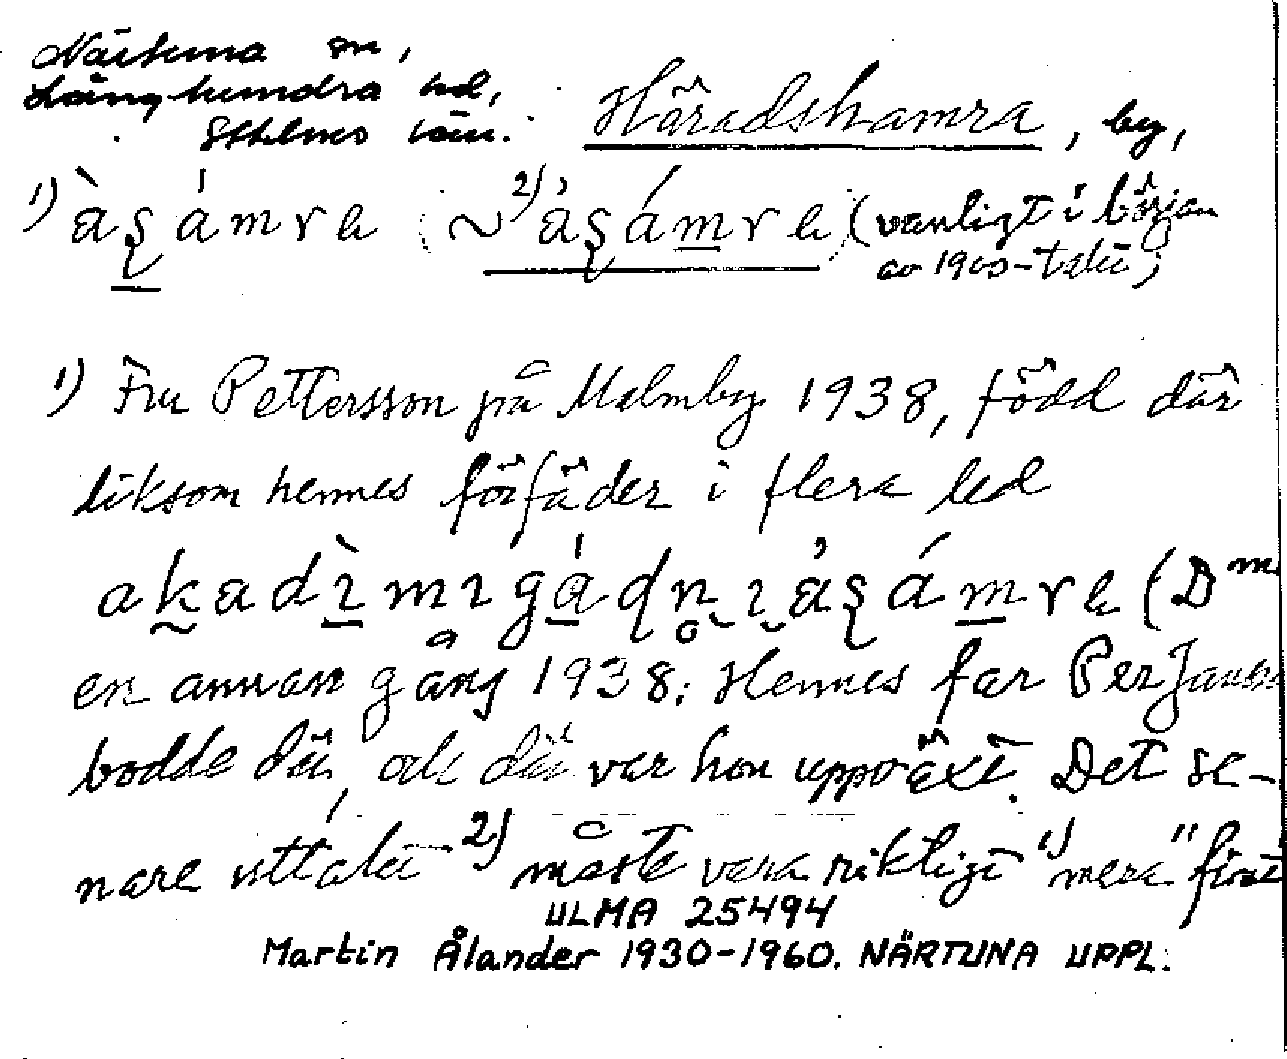 Närtuna sn,
Långhundra hd,
Sthlms län.
Häradshamra, by,
1) àʂámra (~ 2) áʂámra) (vanligt i början
av 1900-talet;
1) Fru Pettersson på Malmby 1938, född där
liksom hennes förfäder i flera led
(D
en annan gång 1938; Hennes far Per Jans
bodde där, och där var hon uppväxt. Det se-
nare uttalet 2) måste vara riktigt 1) mera "fint
ULMA 25494
Martin Ålander 1930-1960. NÄRTUNA UPPL.